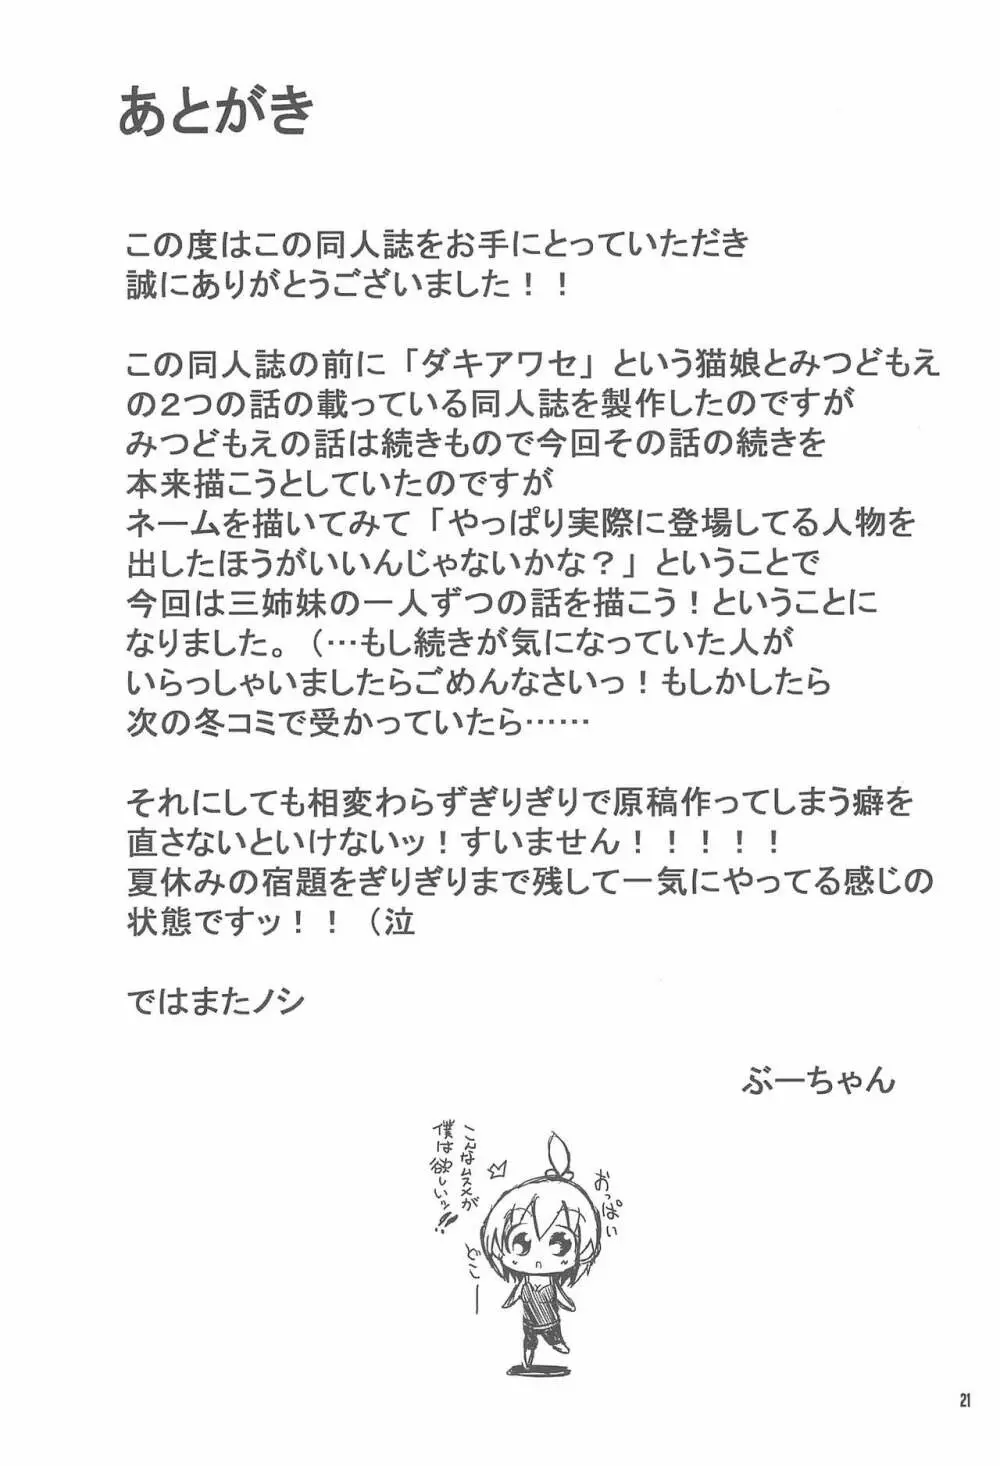 あとがき
この度はこの同人誌をお手にとっていただき
誠にありがとうございました！！
この同人誌の前に「ダキアワセ」という猫娘とみつどもえ
の２つの話の載っている同人誌を製作したのですが
みつどもえの話は続きもので今回その話の続きを
本来描こうとしていたのですが
ネームを描いてみて「やっぱり実際に登場してる人物を
出したほうがいいんじゃないかな？」ということで
今回は三姉妹の一人ずつの話を描こう！ということに
なりました。（…もし続きが気になっていた人が
いらっしゃいましたらごめんなさいっ！もしかしたら
次の冬コミで受かっていたら……
それにしても相変わらずぎりぎりで原稿作ってしまう癖を
直さないといけないッ！すいません！！！！！
夏休みの宿題をぎりぎりまで残して一気にやってる感じの
状態ですッ！！（泣
ではまたノシ
ぶーちゃん
こんなムスメが
僕は欲しいッ!!
おっぱい
どこー
21